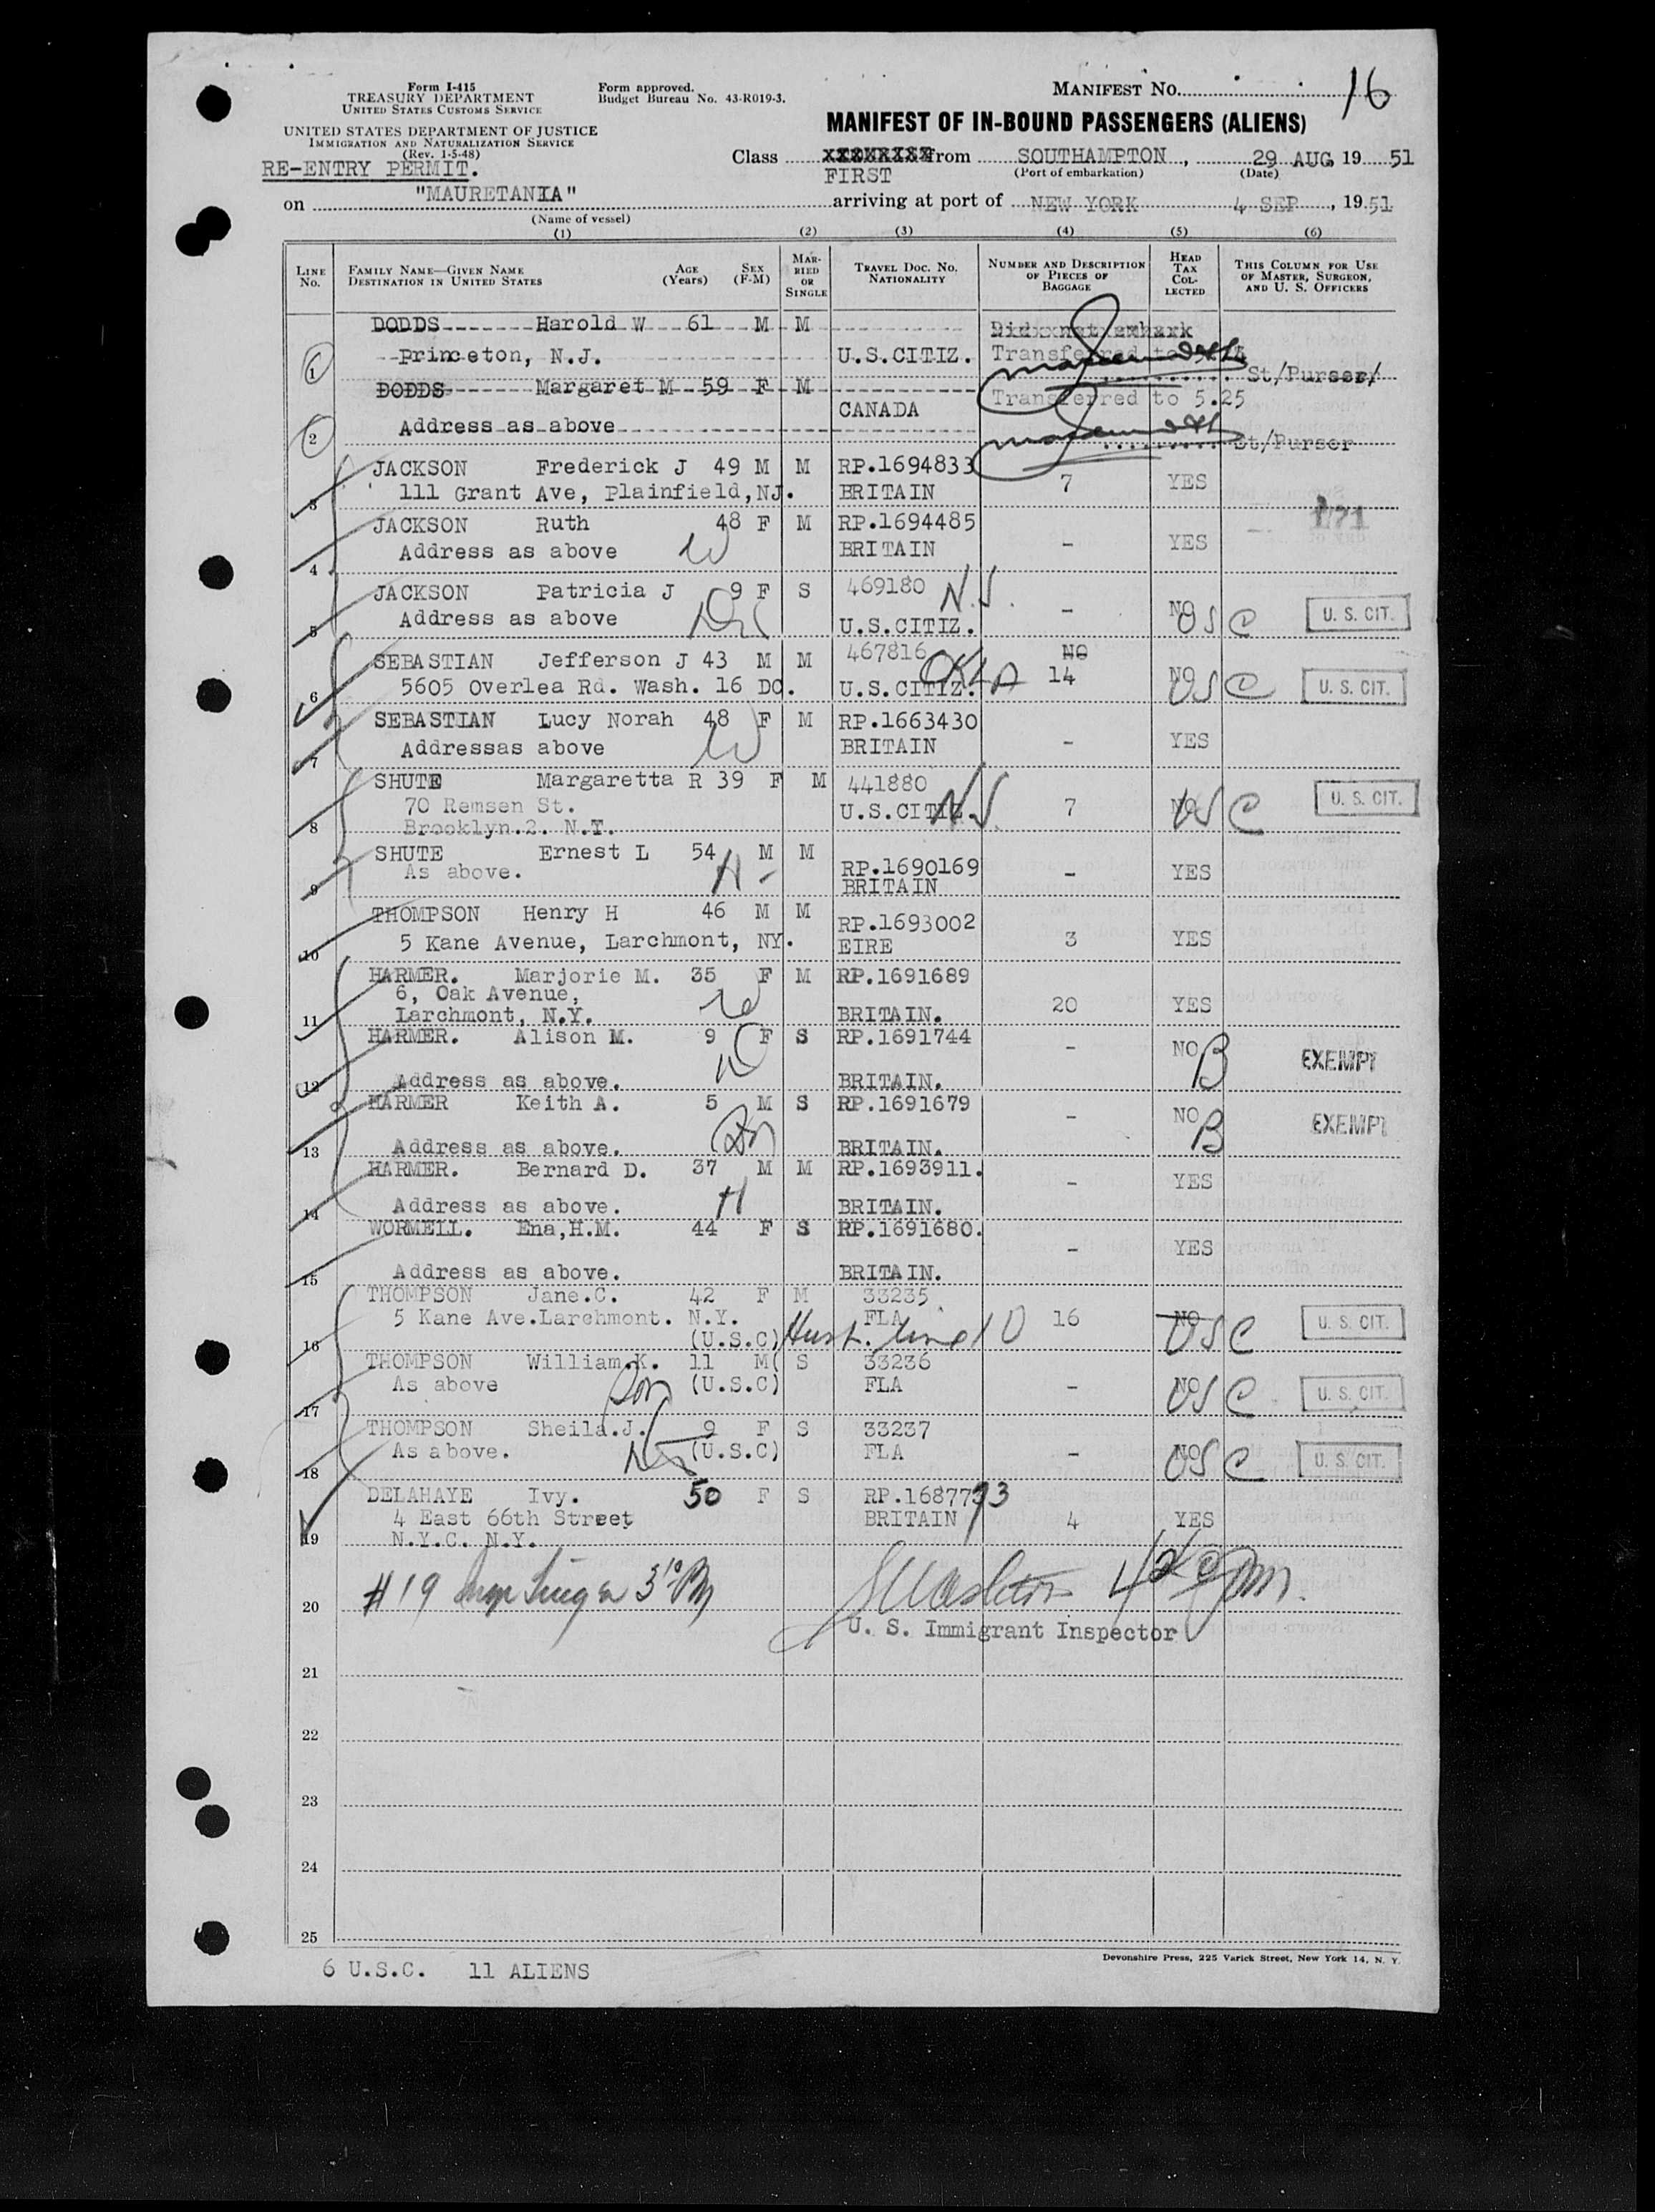 Form I-415
TREASURY DEPARTMENT
UNITED STATES CUSTOMS SERVICE
UNITED STATES DEPARTMENT OF JUSTICE
IMMIGRATION AND NATURALIZATION SERVICE
(Rev. 1-5-48)
RE-ENTRY PERMIT.
Form approved.
Budget Bureau No. 43-R019-3.
MANIFEST NO. 16
MANIFEST OF IN-BOUND PASSENGERS (ALIENS)
Class FIRST from SOUTHAMPTON, 29 AUG, 19 51
(Port of embarkation) (Date)
on "MAURETANIA" arriving at port of NEW YORK 4 SEP, 19 51
(Name of vessel)
(1) (2) (3) (4) (5) (6)
LINE NO. FAMILY NAME—GIVEN NAME DESTINATION IN UNITED STATES AGE (Years) SEX (F-M) MARRIED OR SINGLE TRAVEL DOC. NO. NATIONALITY NUMBER AND DESCRIPTION OF PIECES OF BAGGAGE HEAD TAX COLLECTED THIS COLUMN FOR USE OF MASTER, SURGEON, AND U. S. OFFICERS
DODDS Harold W 61 M M Did not embark
1 Princeton, N.J. U.S.CITIZ. Transferred to
St/Purser/
DODDS Margaret M 59 F M Transferred to 5.25
CANADA
2 Address as above St/Purser
JACKSON Frederick J 49 M M RP.1694833
3 111 Grant Ave, Plainfield, NJ. BRITAIN 7 YES
JACKSON Ruth 48 F M RP.1694485
4 Address as above W BRITAIN - YES
JACKSON Patricia J 9 F S 469180 N.J.
5 Address as above U.S.CITIZ. - NO USC U. S. CIT.
SEBASTIAN Jefferson J 43 M M 467816 NO
6 5605 Overlea Rd. Wash. 16 DC. U.S.CITIZ. OKLA 14 NO USC U. S. CIT.
SEBASTIAN Lucy Norah 48 F M RP.1663430
7 Addressas above W BRITAIN - YES
SHUTE Margaretta R 39 F M 441880
70 Remsen St. U.S.CITIZ. NJ 7 NO USC U. S. CIT.
8 Brooklyn.2. N.T.
SHUTE Ernest L 54 M M
As above. H - RP.1690169 - YES
9 BRITAIN
THOMPSON Henry H 46 M M RP.1693002
10 5 Kane Avenue, Larchmont, NY. EIRE 3 YES
HARMER. Marjorie M. 35 F M RP.1691689
6, Oak Avenue,
11 Larchmont, N.Y. BRITAIN. 20 YES
HARMER. Alison M. 9 F S RP.1691744
12 Address as above. BRITAIN. - NO B EXEMPT
HARMER Keith A. 5 M S RP.1691679
13 Address as above. BRITAIN. - NO B EXEMPT
HARMER. Bernard D. 37 M M RP.1693911.
14 Address as above. H BRITAIN. - YES
WORMELL. Ena,H.M. 44 F S RP.1691680.
15 Address as above. BRITAIN. - YES
THOMPSON Jane.C. 42 F M 33235
5 Kane Ave.Larchmont. N.Y. FLA 16 NO USC U. S. CIT.
16 (U.S.C) Husb. line 10
THOMPSON William.K. 11 M S 33236
17 As above Son (U.S.C) FLA - NO USC U. S. CIT.
THOMPSON Sheila.J. 9 F S 33237
18 As above. (U.S.C) FLA - NO USC U. S. CIT.
DELAHAYE Ivy. 50 F S RP.1687793
4 East 66th Street BRITAIN 4 YES
19 N.Y.C. N.Y.
20 #19
U. S. Immigrant Inspector
21
22
23
24
25
Devonshire Press, 225 Varick Street, New York 14, N. Y.
6 U.S.C. 11 ALIENS